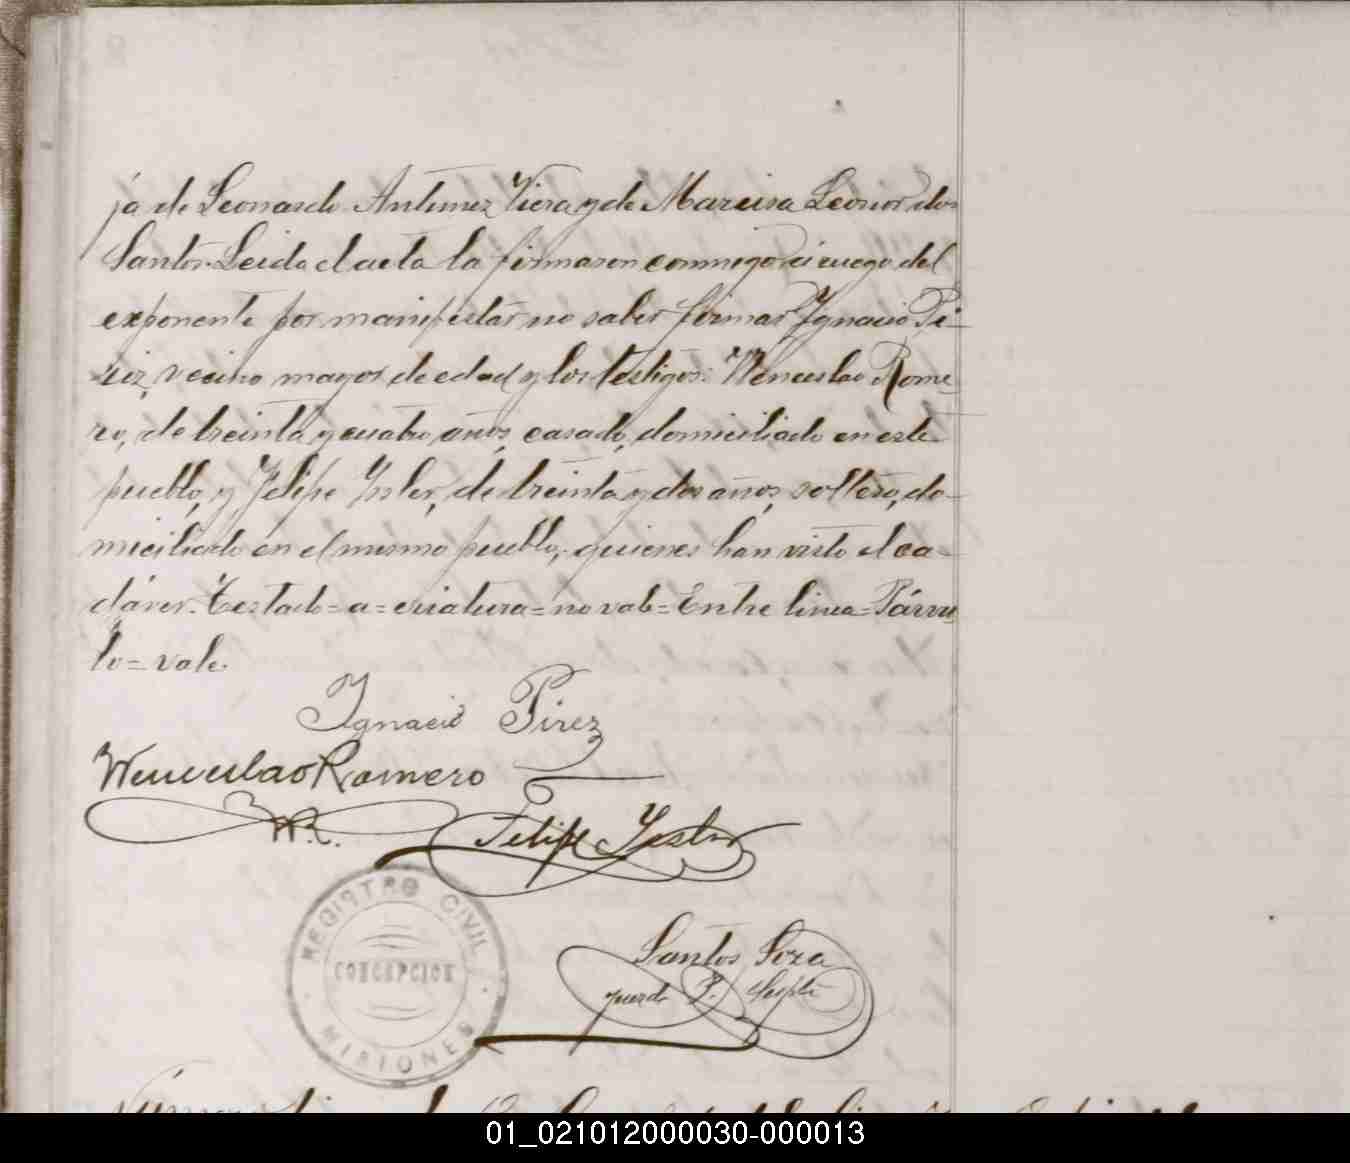 ja de Leonardo Antunez Viera y de Marcisa Leonor dos
Santos. Leida el acta la firmaron conmigo á ruego del
exponente por manifestar no saber firmar Ygnacio Pi-
riz, vecino mayor de edad y los testigos: Wenceslao Rome-
ro, de treinta y cuatro años, casado, domiciliado en este
pueblo, y Felipe Ysler, de treinta y dos años, soltero, do-
miciliado en el mismo pueblo, quienes han visto el ca-
dáver. Testado=a=criatura=no vale=Entre linea=Párvu
lo=vale.
Ignacio Pirez
Wenceslao Romero
W.R.
Felipe Ysler
REGISTRO CIVIL
CONCEPCION
MISIONES
Santos Soza
01_021012000030-000013